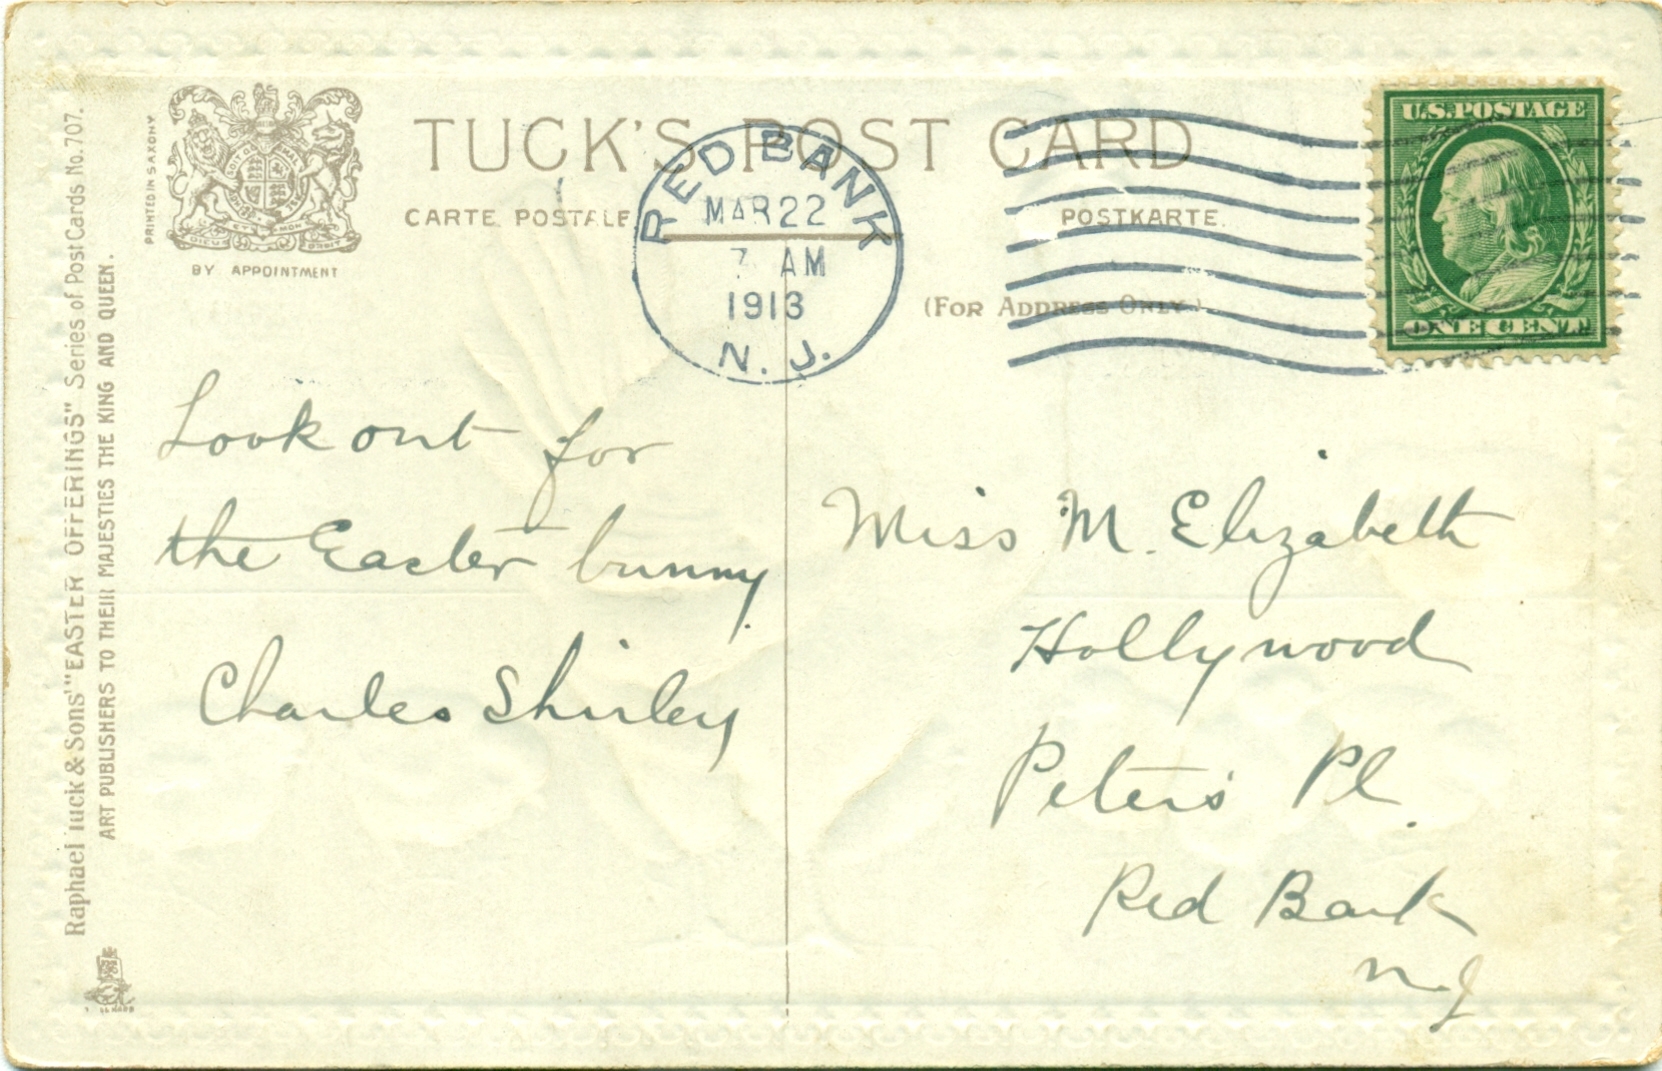 TUCK'S POST CARD
CARTE POSTALE
POSTKARTE.
(FOR ADDRESS ONLY.)
PRINTED IN SAXONY
BY APPOINTMENT
DIEU ET MON DROIT
Raphael Tuck & Sons' "EASTER OFFERINGS" Series of Post Cards No. 707.
ART PUBLISHERS TO THEIR MAJESTIES THE KING AND QUEEN.
RED BANK
MAR 22
7 AM
1913
N. J.
U.S. POSTAGE
ONE CENT
Look out for
the Easter bunny.
Charles Shirley
Miss M. Elizabeth
Hollywood
Peters Pl.
Red Bank
N.J